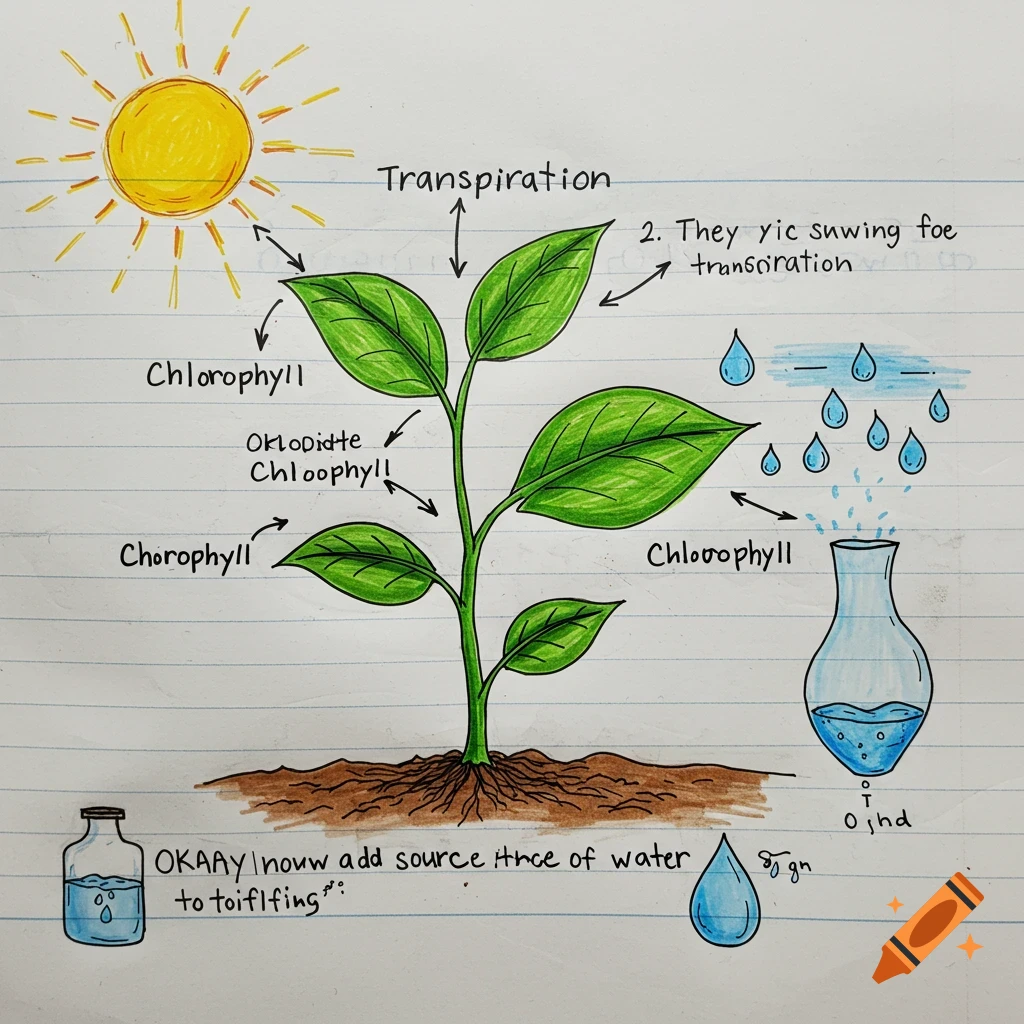 Transpiration
2. They yic snwing foe
transoiration
Chlorophyll
Okloditte
Chloophyll
Chorophyll
Chlouophyll
T
Ojhd
OKAAY inouw add source itnce of water
to toiflfing
gn